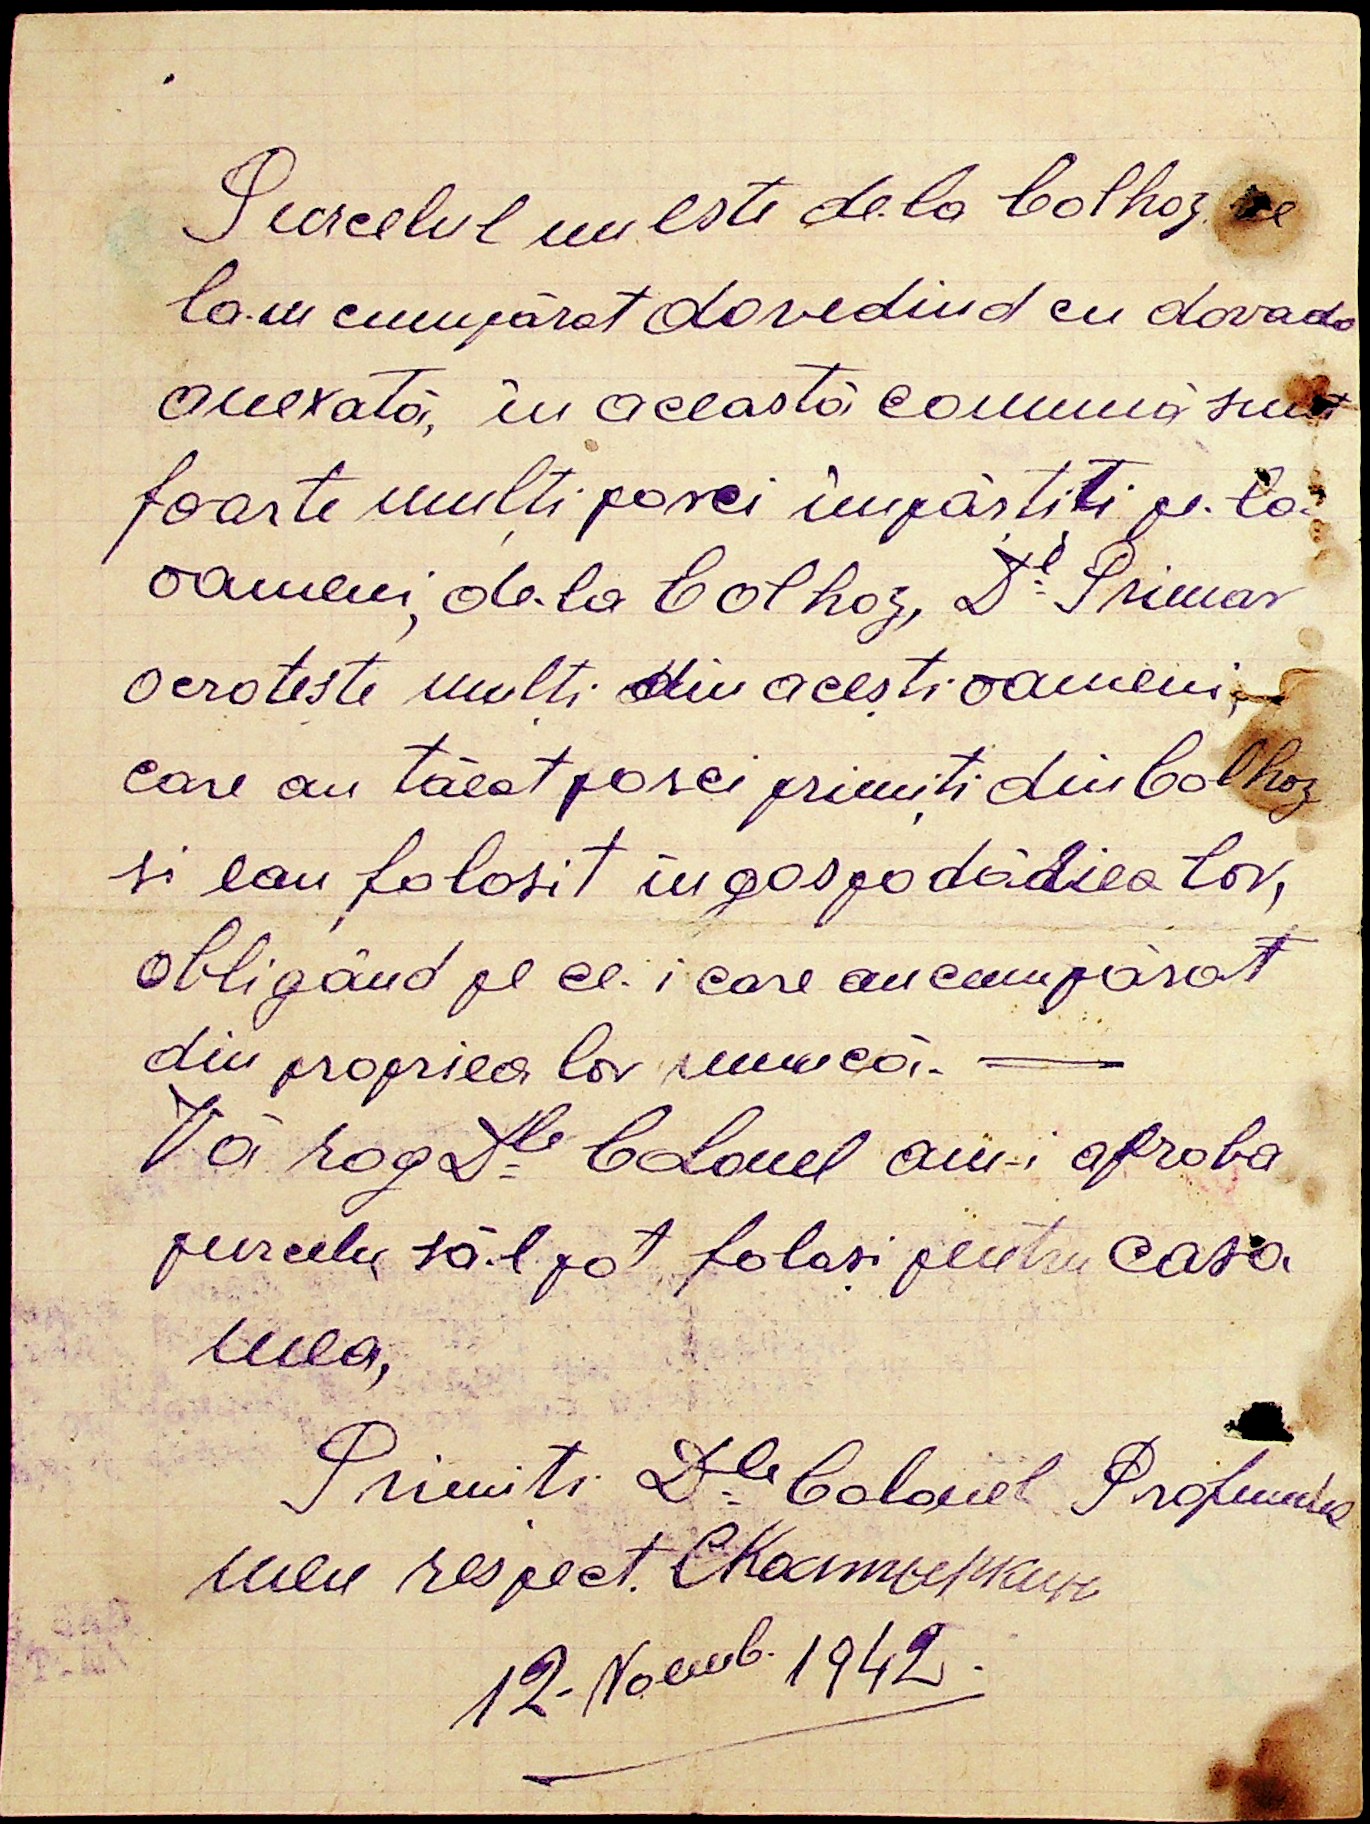 Purcelul nu este de.la Colhoz.
la-m cumpărat dovedind cu dovada
anexată, în această comună sunt
foarte mulți porci împărțiți pe.la.
oameni, de.la Colhoz, Dl Primar
ocrotește mulți din acești oameni,
care au tăeat porci primiți din Colhoz
și eau folosit în gospodădiea lor,
obligând pe ce.i care au cumpărat
din propriea lor muncă. —
Vă rog Dle Colonel ami-i aproba
purcelu să.l pot folosi pentru casa
mea,
Primiți Dle Colonel Profundu
meu respect.
12. Noemb. 1942.